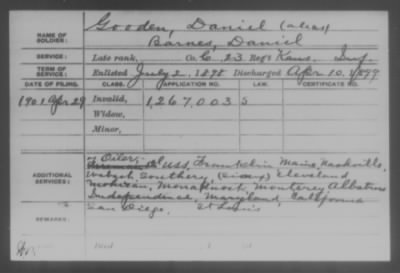 NAME OF SOLDIER:
Gooden, Daniel (alias)
Barnes, Daniel
SERVICE:
Late rank, Co. C. 23 Reg't Kans. Inf.
TERM OF SERVICE:
Enlisted July 2, 1898 Discharged Apr 10, 1899
DATE OF FILING. CLASS. APPLICATION NO. LAW. CERTIFICATE NO.
1901 Apr 29 Invalid, 1,267,003 S
Widow,
Minor,
ADDITIONAL SERVICES:
Oiler, USS, Franklin Maine, Nashville,
Wabash, Southery, (Sioux) Cleveland
Mohican, Monadnock, Monterey Albatross
Independence, Maryland, California
San Diego, St Louis
REMARKS: